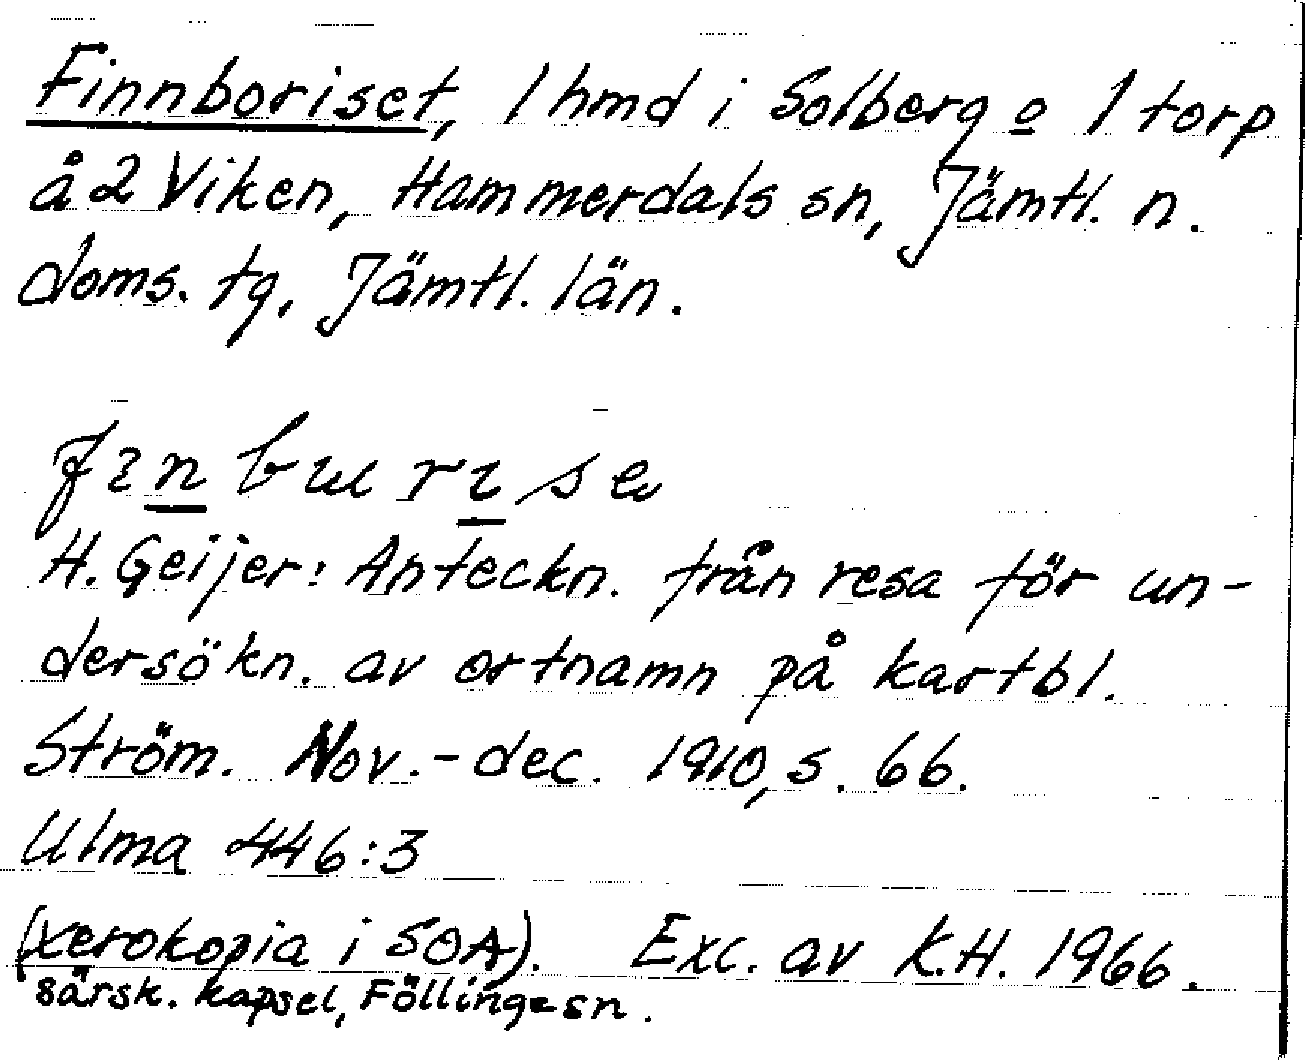 Finnboriset, 1 hmd i Solberg o 1 torp
å 2 Viken, Hammerdals sn, Jämtl. n.
doms. tg, Jämtl. län.
H. Geijer: Anteckn. från resa för un-
dersökn. av ortnamn på kartbl.
Ström. Nov.-dec. 1910, s. 66.
Ulma 446:3
(xerokopia i SOA). Exc. av K.H. 1966.
särsk. kapsel, Föllinge sn.